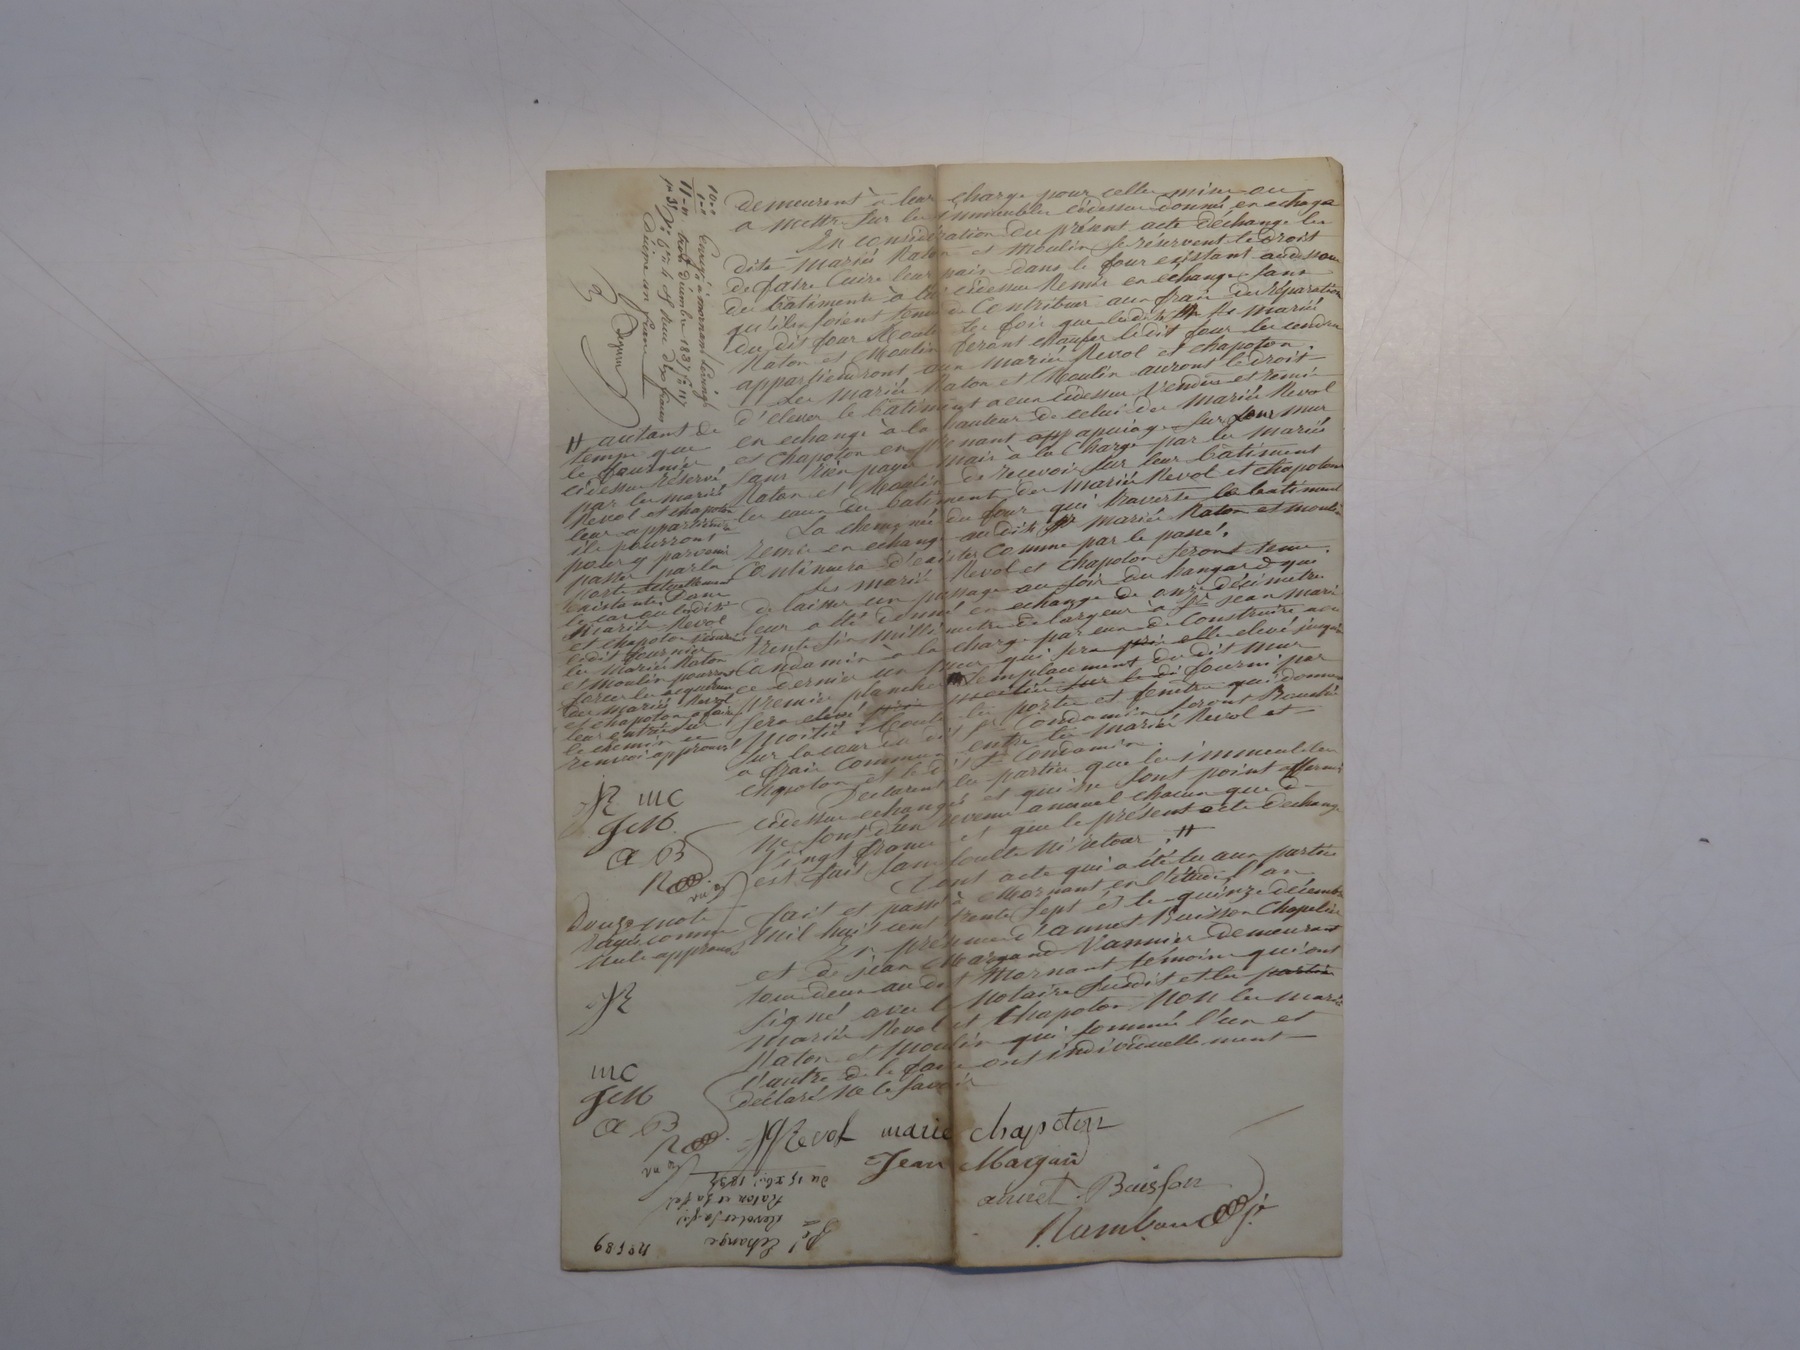 demeurent à leur charge pour celles mises ou
a mettre sur les immeubles cidessus donnés en echange
En considération du présent acte déchange les
dits mariés Raton et Moulin se réservent le droit
de faire Cuire leur pain dans le four existant au dessous
des bâtiments à cidessus Remis en échange sans
qu'ils soient tenus de Contribuer aux frais de réparation
du dit four toutes les fois que lesdits mariés
Raton et Moulin feront chaufer ledit four les cendres
appartiendront aux mariés Revol et chapoton.
Les mariés Raton et Moulin auront le droit
d'élever le bâtiment a eux cidessus Vendu et remis
en echange à la hauteur de celui des mariés Revol
et Chapoton en prenant appuiage sur leur mur
sans rien payer mais a la Charge par les mariés
Raton et Moulin de recevoir sur leur bâtiment
les eaux du batiment des mariés Revol et chapoton
La cheminée du four qui traverse le batiment
remis en echange audits mariés Raton et moulin
Continuera d'exister Comme par le passé.
Les mariés Revol et chapoton seront tenus
de laisser un passage au soir du hangard que
leur a été donné en echange de onze décimetres
trente six millimetres de largeur à Sr jean marie
Condamin à la charge par eux de Construire avec
ce dernier un mur qui sera elevé jusqu'au
premier plancher l'emplacement du dit mur
sera fourni par
moitié. Toutes les portes et fenêtres qui donnent
sur la cour du dit Sr Condamin seront Bouchés
a frais Communs entre les mariés Revol et
chapoton et le dit Sr Condamin.
Declarent les parties que les immeubles
cidessus echangés et qui ne sont point affermés
ne sont d'un revenu annuel chacun que de
Vingt francs et que le présent acte dechange
est fait sans soulte ni retour. #
Dont acte qui a été lu aux parties
fait et passé à Mornant en l'étude l'an
mil huit cent trente sept et le quinze décembre
En présence d'annet Buisson Chapelier
et de jean Margand Vannier demeurant
tous deux au dit Mornant témoins qui ont
signé avec le Notaire susdit et les parties
mariés Revol et Chapoton Non les mariés
Raton et Moulin qui sommés l'un et
l'autre de le faire ont individuellement
déclaré ne le savoir
# autant de
temps que
le fournier
cidessus réservé
par les mariés
Revol et chapoton
leur appartiendra
ils pourront
pour y parvenir
passer par la
porte actuellement
existante dans
la cour ou lesdits
Mariés Revol
et Chapoton
ledit fournier
les mariés Raton
et Moulin pourront
forcer les
des mariés Revol
et chapoton a faire
leur entrée sur
le chemin ce
renvoi approuvé
JR mc
JCM
a B
Douze mots
rayés comme
nuls approuvés
JR
mc
JCM
a B
JRevol marie chapoton
Jean Margand
annet Buisson
Enregé à mornant
décembre 1837 fo 117
décime un franc
No 589
Echange
Revol et sa fe
Raton et sa fe
du 15 Xbre 1837